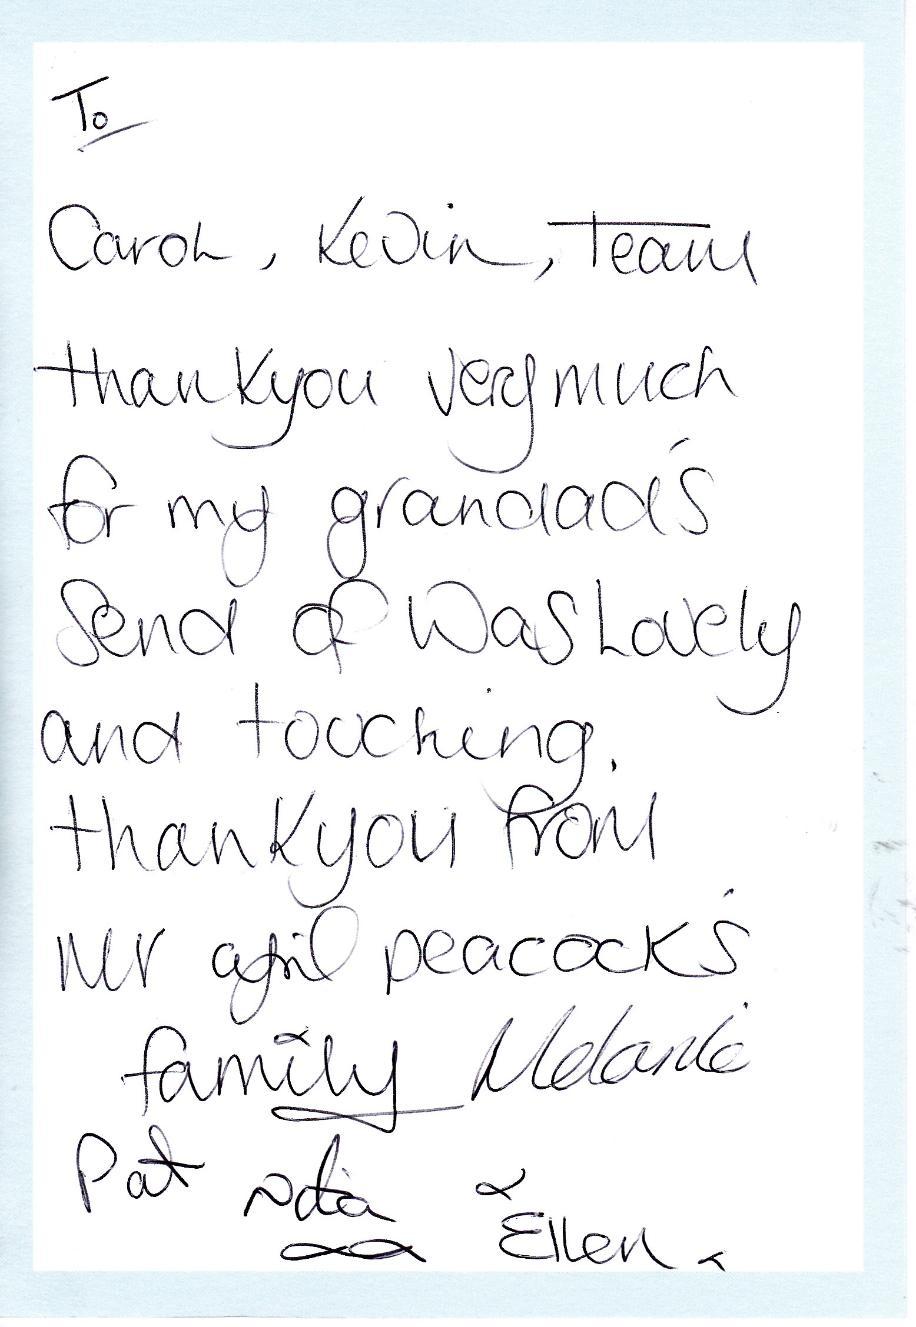 To
Carol, Kevin, Team
thankyou very much
for my grandad's
Send of Was Lovely
and touching.
thankyou from
Mr peacock's
family Melanie
Pat
Ellen.